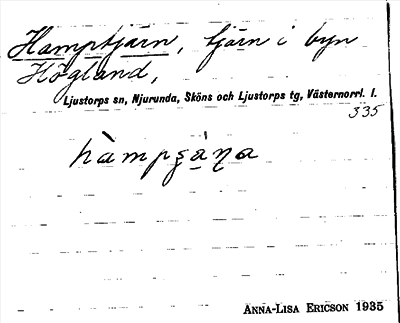 Hamptjärn, tjärn i byn
Högland,
Ljustorps sn, Njurunda, Sköns och Ljustorps tg, Västernorrl. l.
335
hàmpṣạ̈ṇa
ANNA-LISA ERICSON 1935